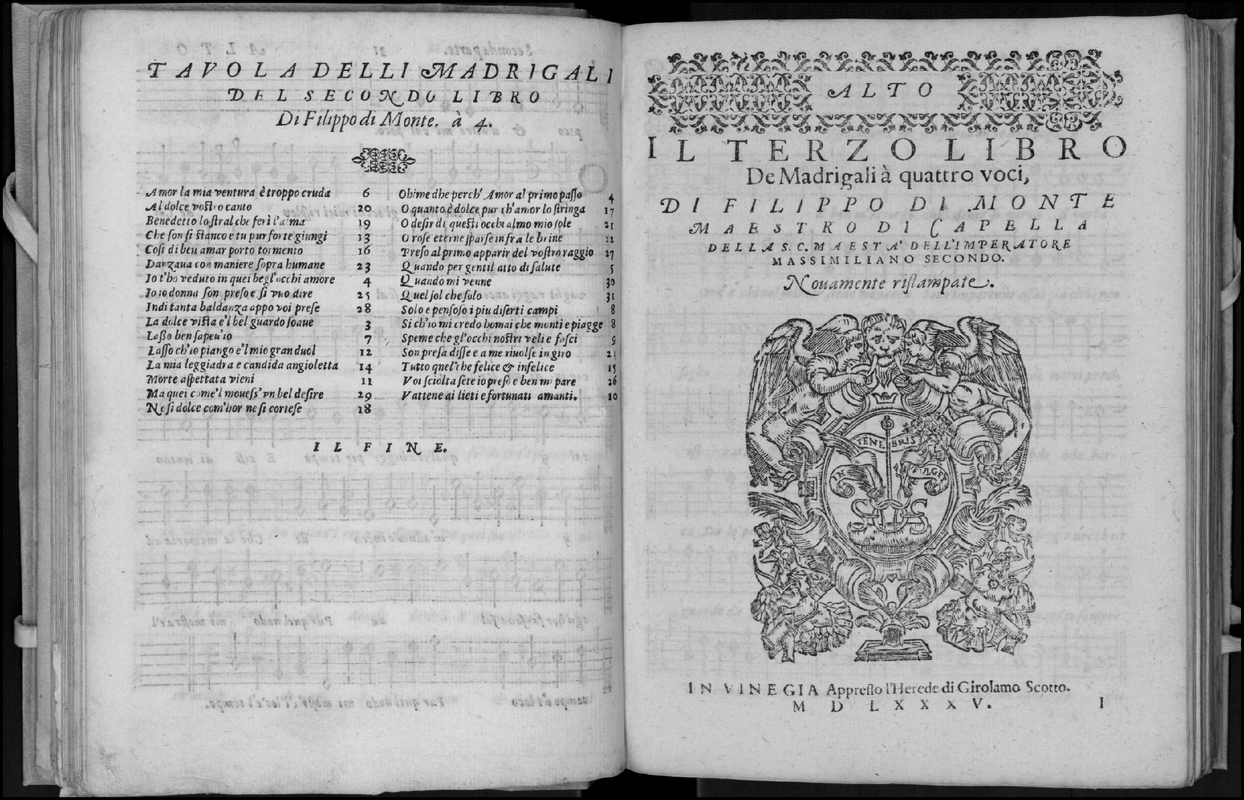 TAVOLA DELLI MADRIGALI
DEL SECONDO LIBRO
Di Filippo di Monte, à 4.
Amor la mia ventura è troppo cruda 6
Al dolce vostro canto 20
Benedetto lo stral che ferì l'alma 19
Che son sì stanco e tu pur forte giungi 13
Così di ben amar porto tormento 16
Danzaua con maniere sopra humane 23
Io t'ho veduto in quei begl'occhi amore 4
Io io donna son preso e si vuo dire 25
Indi tanta baldanza appo voi prese 28
La dolce vista e'l bel guardo soaue 3
Lasso ben sapeu'io 7
Lasso ch'io piango e'l mio gran duol 12
La mia leggiadra e candida angioletta 14
Morte aspettata vieni 11
Ma quei come'l mouess'vn bel desire 29
Ne si dolce com'hor ne si cortese 18
Ohime dhe perch'Amor al primo passo 4
O quanto è dolce pur ch'amor lo stringa 17
O desir di questi occhi almo mio sole 21
O rose eterne sparse in fra le brine 22
Preso al primo apparir del vostro raggio 27
Quando per gentil atto di salute 5
Quando mi venne 30
Quel sol che solo 31
Solo e pensoso i piu diserti campi 8
Si ch'io mi credo homai che monti e piagge 8
Speme che gl'occhi nostri veli e fasci 9
Son presa disse e a me riuolse in giro 2
Tutto quel che felice & infelice 15
Voi sciolta sete io preso e ben mi pare 26
Vattene ai lieti e fortunati amanti. 10
IL FINE.
ALTO
IL TERZO LIBRO
De Madrigali à quattro voci,
DI FILIPPO DI MONTE
MAESTRO DI CAPELLA
DELLA S. C. MAESTA' DELL'IMPERATORE
MASSIMILIANO SECONDO.
Nouamente ristampate.
IN TENEBRIS FULGET
SOS
IN VINEGIA Appresso l'Herede di Girolamo Scotto.
M D LXXXV. I